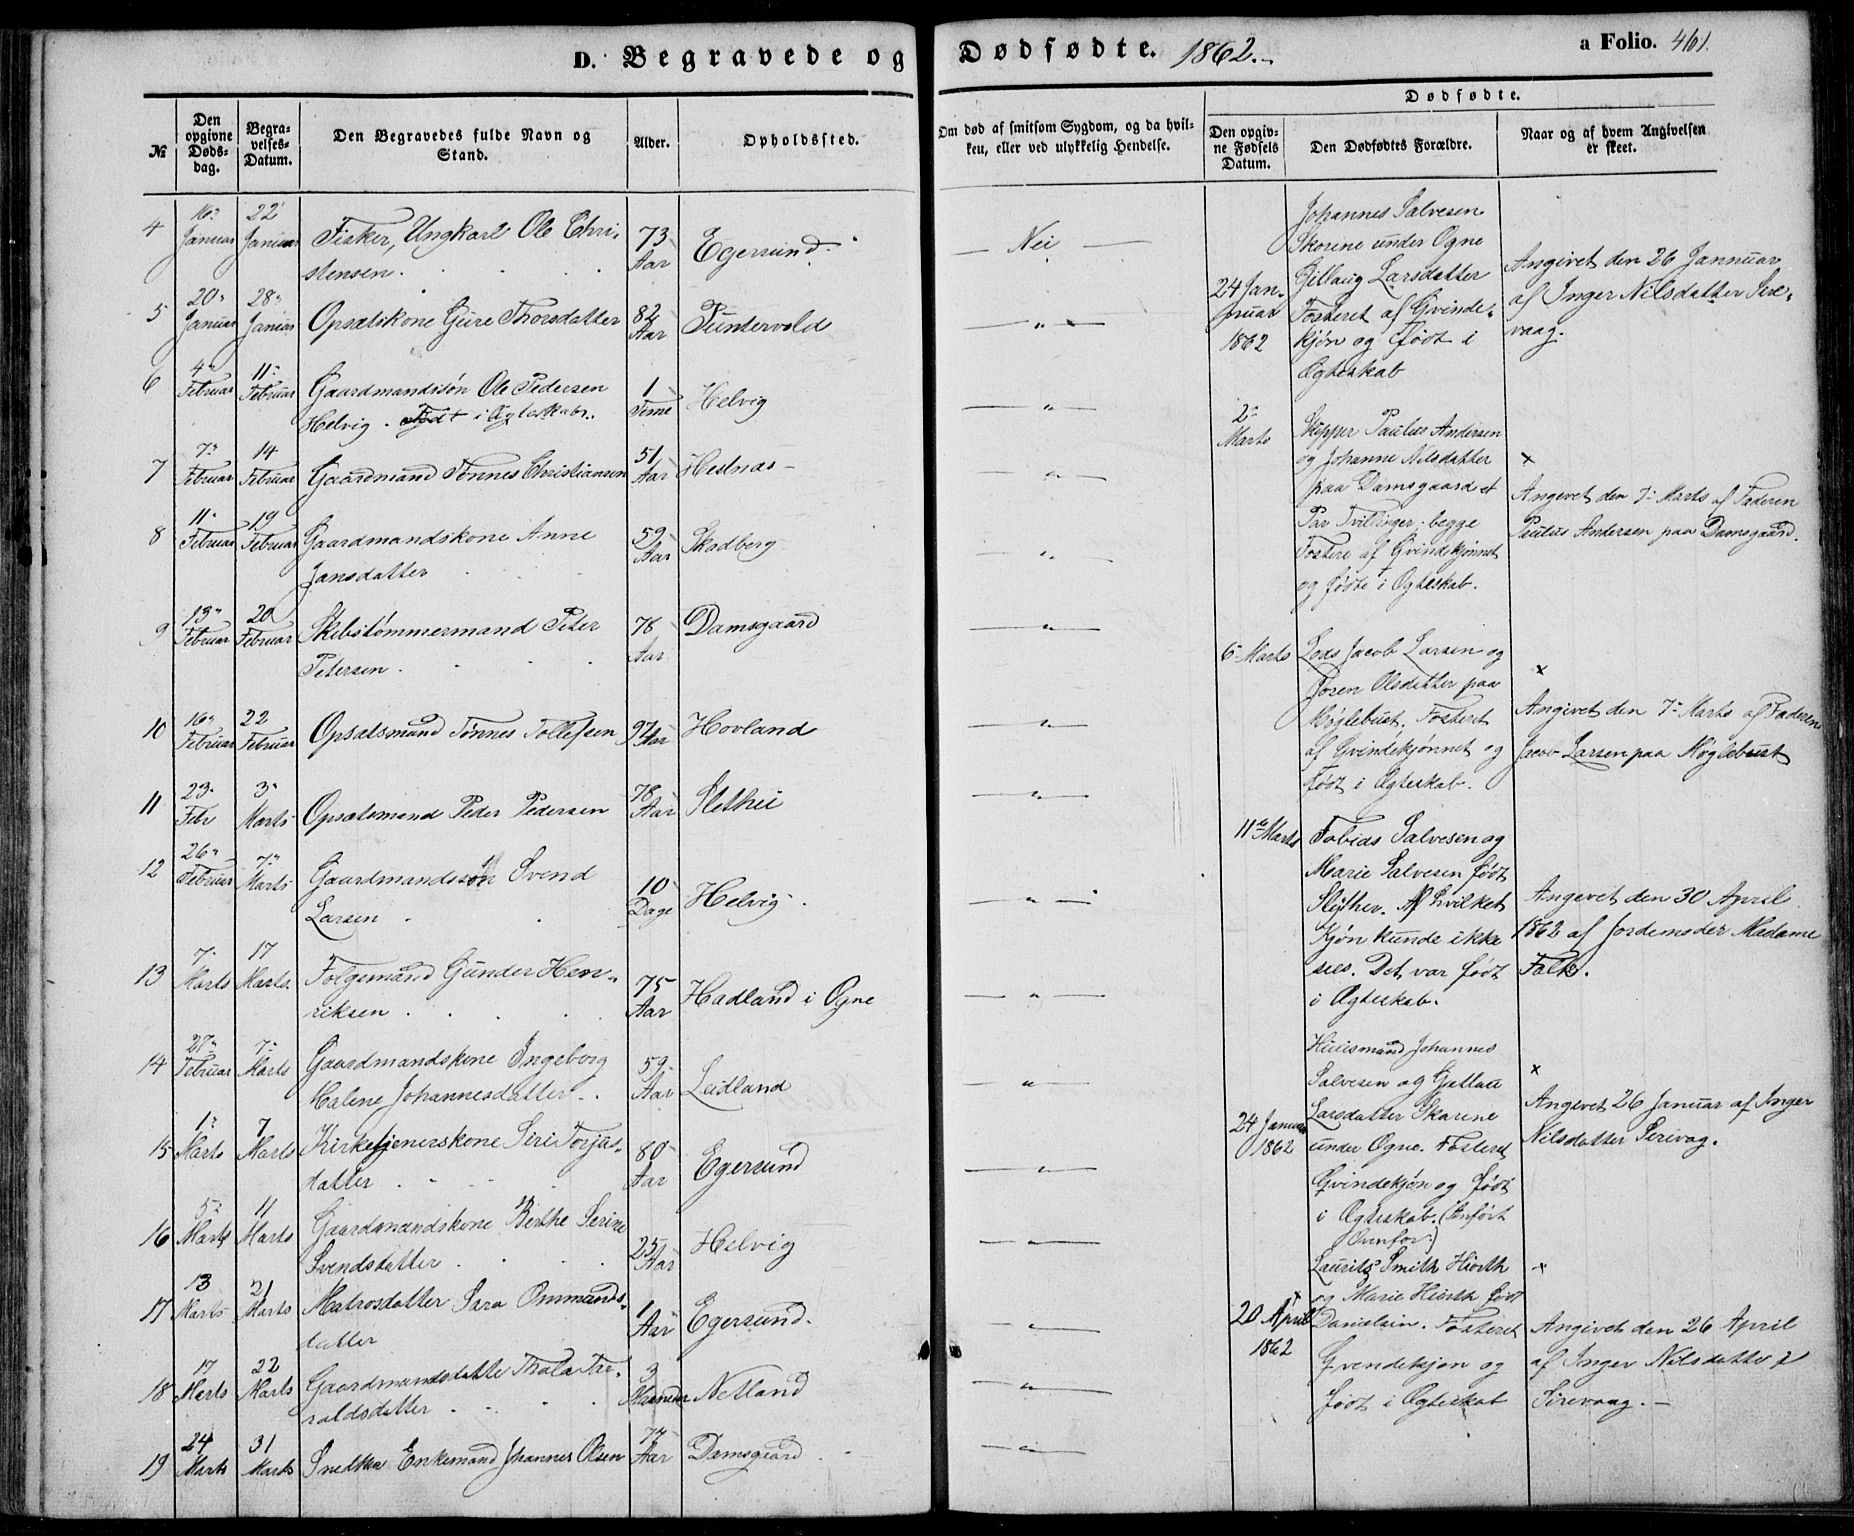 D. Begravede og Dødfødte. 1862.-
a Folio. 461.
№
Den opgivne Døds-dag.
Begra-velses-Datum.
Den Begravedes fulde Navn og Stand.
Alder.
Opholdssted.
Om død af smitsom Sygdom, og da hvil-ken, eller ved ulykkelig Hendelse.
Dødfødte.
Den opgiv-ne Fødsels Datum.
Den Dødfødtes Forældre.
Naar og af hvem Angivelsen er skeet.
4 16 Januar 22 Januar Fisker, Ungkarl Ole Chri-
stensen. 73 Aar Egersund. Nei
5 20 Januar 28 Januar Opsætskone Gure Thorsdatter 82 Aar Puntervold "
6 4 Februar 11 Februar Gaardmandssøn Ole Pedersen
Helvig. Født i Ægteskab. 1 Time Helvig "
7 7 Februar 14 Februar Gaardmand Tønnes Christiansen 51 Aar Hestnæs "
8 11 Februar 19 Februar Gaardmandskone Anne
Jansdatter 59 Aar Skadberg "
9 13 Februar 20 Februar Skibstømmermand Peter
Petersen. 78 Aar Damsgaard "
10 16 Februar 22 Februar Opsatsmand Tønnes Tollefsen 97 Aar Hovland "
11 23 Febr 3 Marts Opsætsmand Peder Pedersen 78 Aar Slethei "
12 26 Februar 7 Marts Gaardmandssøn Svend
Larsen 10 Dage Helvig. "
13 7 Marts 17 Marts. Folgemand Gunder Hen-
riksen 75 Aar Hadland i Ogne "
14 27 Februar 7 Marts Gaardmandskone Ingeborg
Malene Johannesdatter. 59 Aar Leidland "
15 1 Marts 7 Marts Kirketjenerskone Siri Torjus-
datter 80 Aar Egersund "
16 5 Marts 11 Marts Gaardmandskone Berthe Serine
Svendsdatter 25 Aar Helvig "
17 13 Marts 21 Marts Matrosdatter Sara Ommunds-
datter 1 Aar Egersund. "
18 17 Marts 22 Marts Gaardmandsdatter Thala Ta-
raldsdatter 3 Maaneder Netland "
19 24 Marts 31 Marts Snedker Enkemand Johannes Olsen 77 Aar Damsgaard "
24 Jan-
nuar
1862
Johannes Salvesen
Skorine under Ogne
Gillaug Larsdatter
Fosteret af Qvinde-
kjøn og Født i
Ægteskab
Angivet den 26 Jannuar
af Inger Nilsdatter Sire-
vaag.
2 Marts
Skipper Paulus Andersen
og Johanne Nilsdatter
paa Damsgaard et
Par Tvillinger; begge
Fostere af Qvindekjønnet
og fødte i Ægteskab.
×
Angivet den 7 Marts af Faderen
Paulus Andersen paa Damsgaard.
6 Marts
Lods Jacob Larsen og
Josen Olsdatter paa
Møglebust. Fosteret
af Qvindekjønnet og
født i Ægteskab.
×
Angivet den 7 Marts af Faderen
Jacob Larsen paa Møglebust
11te Marts
Tobias Salvesen og
Marie Salvesen født
Slyther. Af hvilket
Kjøn kunde ikke
sees. Det var født
i Ægteskab.
Angevet den 30 April
1862 af Jordemoder Madame
Falk.
24 Januar
1862
Huusmand Johannes
Salvesen og Gullau
Larsdatter Skarine
under Ogne. Fosteret
Qvindekjøn og født
i Ægteskab. (Anført
Ovenfor:)
×
Angivet 26 Januar af Inger
Nilsdatter Sirivag.
20 April
1862
Lauritz Smith Hiorth
og Marie Hiorth født
Danielsin. Fosteret
Qvendekjøn og
født i Ægteskab
×
Angivet den 26 April
af Inger Nilsdatter i
Sirevaag.-